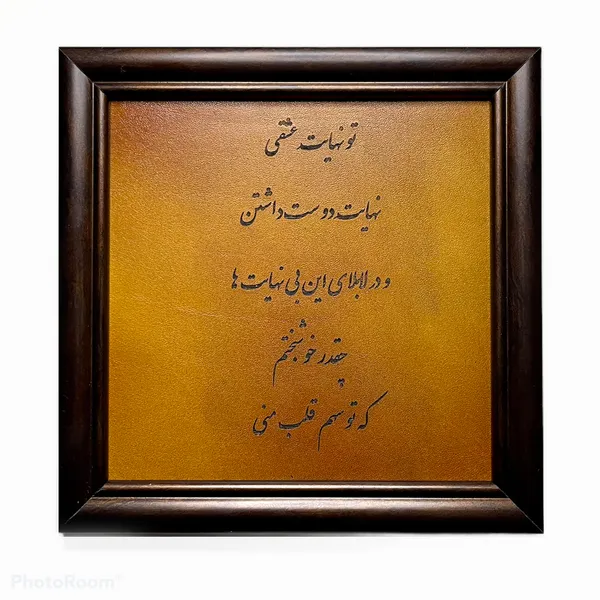 تو نهایت عشقی
نهایت دوست داشتن
و در لابلای این بی نهایت ها
چقدر خوشبختم
که تو سهم قلب منی
PhotoRoom